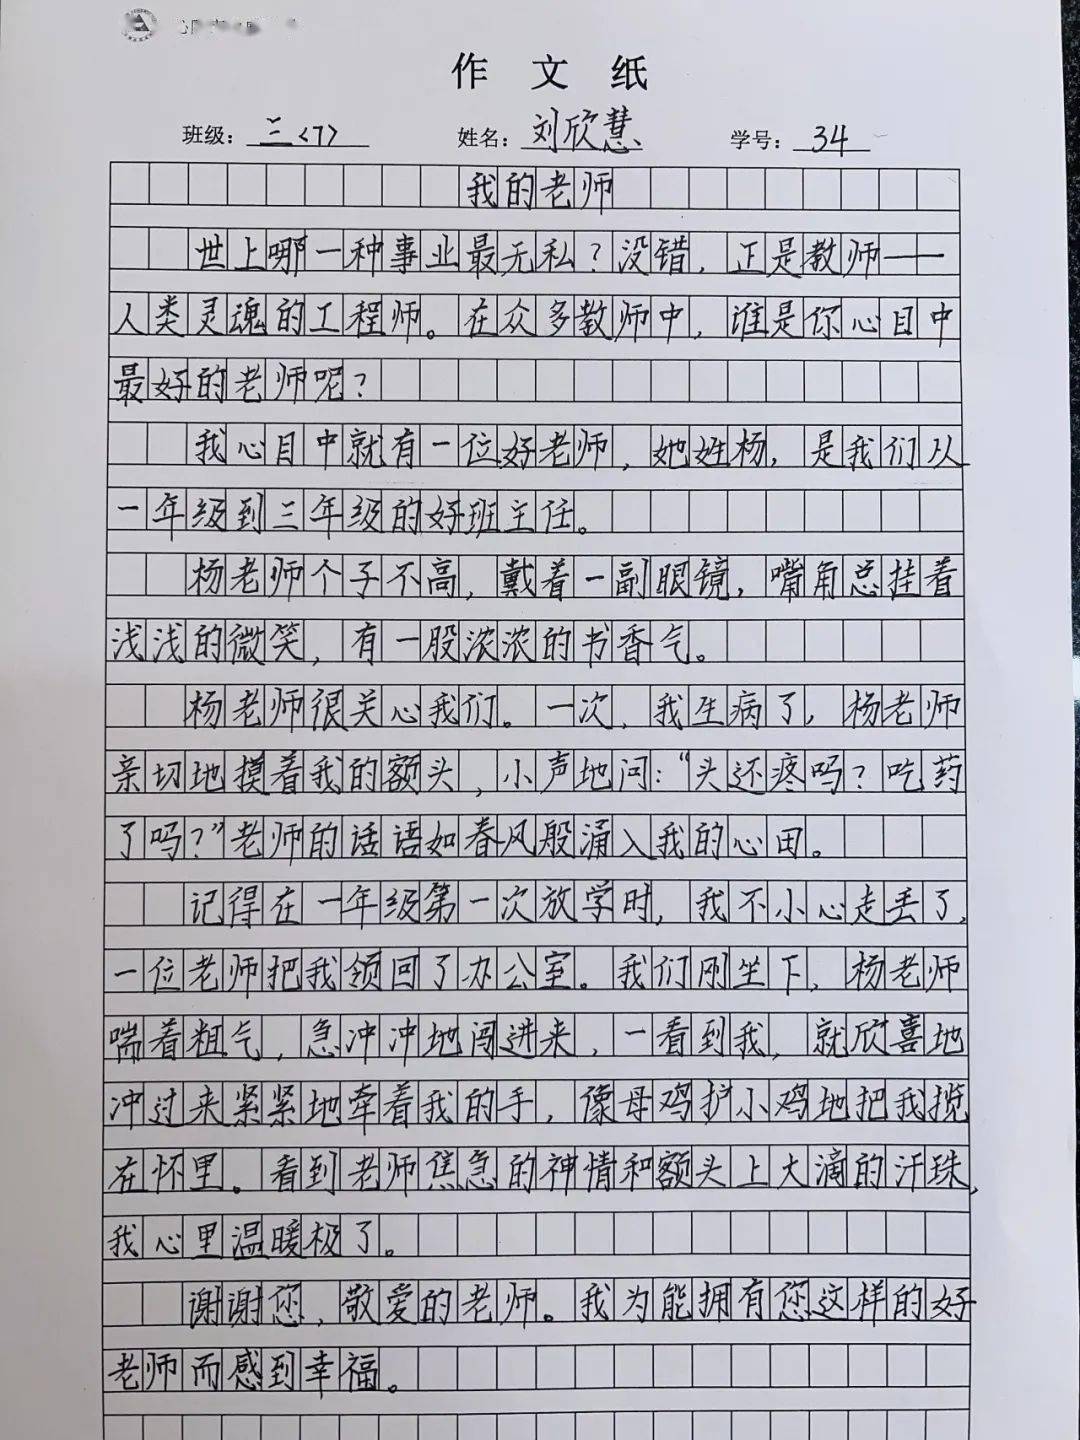 作 文 纸
班级：三<7> 姓名：刘欣慧 学号：34
我的老师
世上哪一种事业最无私？没错，正是教师——
人类灵魂的工程师。在众多教师中，谁是你心目中
最好的老师呢？
我心目中就有一位好老师，她姓杨，是我们从
一年级到三年级的好班主任。
杨老师个子不高，戴着一副眼镜，嘴角总挂着
浅浅的微笑，有一股浓浓的书香气。
杨老师很关心我们。一次，我生病了，杨老师
亲切地摸着我的额头，小声地问：“头还疼吗？吃药
了吗？”老师的话语如春风般涌入我的心田。
记得在一年级第一次放学时，我不小心走丢了，
一位老师把我领回了办公室。我们刚坐下，杨老师
喘着粗气，急冲冲地闯进来，一看到我，就欣喜地
冲过来紧紧地牵着我的手，像母鸡护小鸡地把我揽
在怀里。看到老师焦急的神情和额头上大滴的汗珠，
我心里温暖极了。
谢谢您，敬爱的老师。我为能拥有您这样的好
老师而感到幸福。